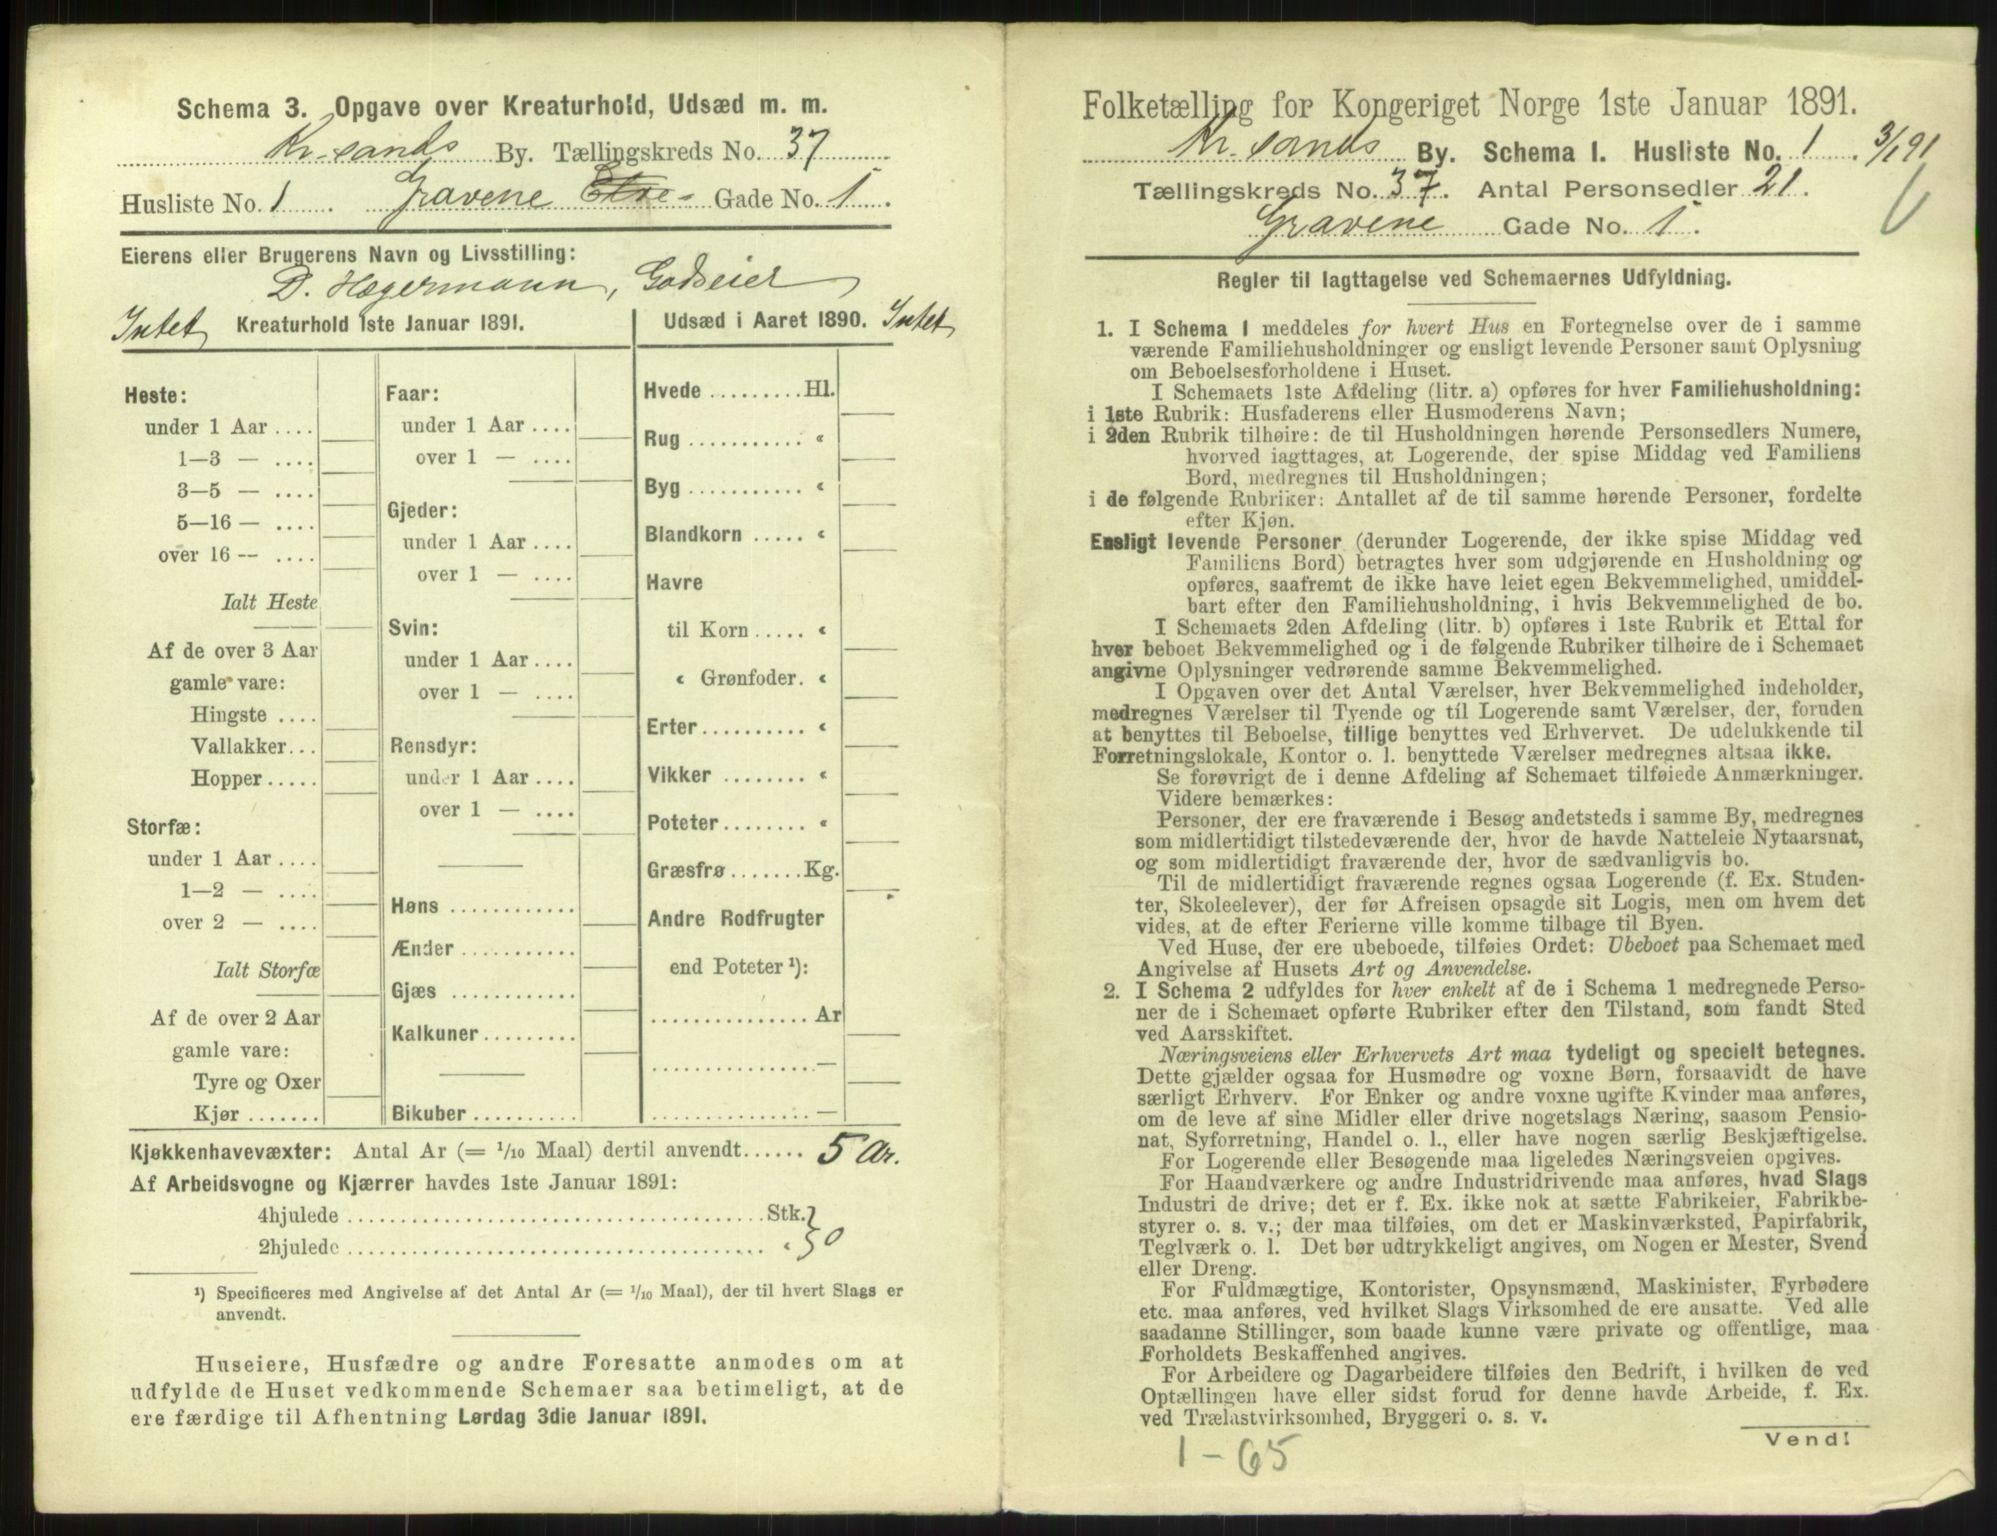 Schema 3. Opgave over Kreaturhold, Udsæd m. m.
Kr.sands By. Tællingskreds No. 37
Husliste No. 1 Gravene Gade No. 1.
Eierens eller Brugerens Navn og Livsstilling:
D. Hegermann, Godseier
Intet Kreaturhold 1ste Januar 1891.
Heste:
under 1 Aar ....
1—3 — ....
3—5 — ....
5—16 — ....
over 16 — ....
Ialt Heste
Af de over 3 Aar
gamle vare:
Hingste ....
Vallakker...
Hopper.....
Storfæ:
under 1 Aar ....
1—2 — ....
over 2 — ....
Ialt Storfæ
Af de over 2 Aar
gamle vare:
Tyre og Oxer
Kjør .......
Faar:
under 1 Aar ....
over 1 — ....
Gjeder:
under 1 Aar ....
over 1 — ....
Svin:
under 1 Aar ....
over 1 — ....
Rensdyr:
under 1 Aar ....
over 1 — ....
Høns ............
Ænder ...........
Gjæs ............
Kalkuner.........
Bikuber ..........
Udsæd i Aaret 1890. Intet
Hvede .........Hl.
Rug ........... «
Byg ........... «
Blandkorn ..... «
Havre
til Korn ..... «
« Grønfoder. «
Erter.......... «
Vikker ........ «
Poteter........ «
Græsfrø.......Kg.
Andre Rodfrugter
end Poteter ¹):
................Ar
................—
................—
Kjøkkenhavevæxter: Antal Ar (= 1/10 Maal) dertil anvendt...... 5 Ar.
Af Arbeidsvogne og Kjærrer havdes 1ste Januar 1891:
4hjulede ........................................Stk.
2hjulede ........................................ « } 0
¹) Specificeres med Angivelse af det Antal Ar (= 1/10 Maal), der til hvert Slags er
anvendt.
Huseiere, Husfædre og andre Foresatte anmodes om at
udfylde de Huset vedkommende Schemaer saa betimeligt, at de
ere færdige til Afhentning Lørdag 3die Januar 1891.
Folketælling for Kongeriget Norge 1ste Januar 1891.
Kr.sands By. Schema 1. Husliste No. 1. 3/1 91
Tællingskreds No. 37. Antal Personsedler 21.
Gravene Gade No. 1.
Regler til Iagttagelse ved Schemaernes Udfyldning.
1. I Schema 1 meddeles for hvert Hus en Fortegnelse over de i samme
værende Familiehusholdninger og ensligt levende Personer samt Oplysning
om Beboelsesforholdene i Huset.
I Schemaets 1ste Afdeling (litr. a) opføres for hver Familiehusholdning:
i 1ste Rubrik: Husfaderens eller Husmoderens Navn;
i 2den Rubrik tilhøire: de til Husholdningen hørende Personsedlers Numere,
hvorved iagttages, at Logerende, der spise Middag ved Familiens
Bord, medregnes til Husholdningen;
i de følgende Rubriker: Antallet af de til samme hørende Personer, fordelte
efter Kjøn.
Ensligt levende Personer (derunder Logerende, der ikke spise Middag ved
Familiens Bord) betragtes hver som udgjørende en Husholdning og
opføres, saafremt de ikke have leiet egen Bekvemmelighed, umiddel-
bart efter den Familiehusholdning, i hvis Bekvemmelighed de bo.
I Schemaets 2den Afdeling (litr. b) opføres i 1ste Rubrik et Ettal for
hver beboet Bekvemmelighed og i de følgende Rubriker tilhøire de i Schemaet
angivne Oplysninger vedrørende samme Bekvemmelighed.
I Opgaven over det Antal Værelser, hver Bekvemmelighed indeholder,
medregnes Værelser til Tyende og til Logerende samt Værelser, der, foruden
at benyttes til Beboelse, tillige benyttes ved Erhvervet. De udelukkende til
Forretningslokale, Kontor o. l. benyttede Værelser medregnes altsaa ikke.
Se forøvrigt de i denne Afdeling af Schemaet tilføiede Anmærkninger.
Videre bemærkes:
Personer, der ere fraværende i Besøg andetsteds i samme By, medregnes
som midlertidigt tilstedeværende der, hvor de havde Natteleie Nytaarsnat,
og som midlertidigt fraværende der, hvor de sædvanligvis bo.
Til de midlertidigt fraværende regnes ogsaa Logerende (f. Ex. Studen-
ter, Skoleelever), der før Afreisen opsagde sit Logis, men om hvem det
vides, at de efter Ferierne ville komme tilbage til Byen.
Ved Huse, der ere ubeboede, tilføies Ordet: Ubeboet paa Schemaet med
Angivelse af Husets Art og Anvendelse.
2. I Schema 2 udfyldes for hver enkelt af de i Schema 1 medregnede Perso-
ner de i Schemaet opførte Rubriker efter den Tilstand, som fandt Sted
ved Aarsskiftet.
Næringsveiens eller Erhvervets Art maa tydeligt og specielt betegnes.
Dette gjælder ogsaa for Husmødre og voxne Børn, forsaavidt de have
særligt Erhverv. For Enker og andre voxne ugifte Kvinder maa anføres,
om de leve af sine Midler eller drive nogetslags Næring, saasom Pensio-
nat, Syforretning, Handel o. l., eller have nogen særlig Beskjæftigelse.
For Logerende eller Besøgende maa ligeledes Næringsveien opgives.
For Haandværkere og andre Industridrivende maa anføres, hvad Slags
Industri de drive; det er f. Ex. ikke nok at sætte Fabrikeier, Fabrikbe-
styrer o. s. v.; der maa tilføies, om det er Maskinværksted, Papirfabrik,
Teglværk o. l. Det bør udtrykkeligt angives, om Nogen er Mester, Svend
eller Dreng.
For Fuldmægtige, Kontorister, Opsynsmænd, Maskinister, Fyrbødere
etc. maa anføres, ved hvilket Slags Virksomhed de ere ansatte. Ved alle
saadanne Stillinger, som baade kunne være private og offentlige, maa
Forholdets Beskaffenhed angives.
For Arbeidere og Dagarbeidere tilføies den Bedrift, i hvilken de ved
Optællingen have eller sidst forud for denne havde Arbeide, f. Ex.
ved Trælastvirksomhed, Bryggeri o. s. v.
Vend!
1-65